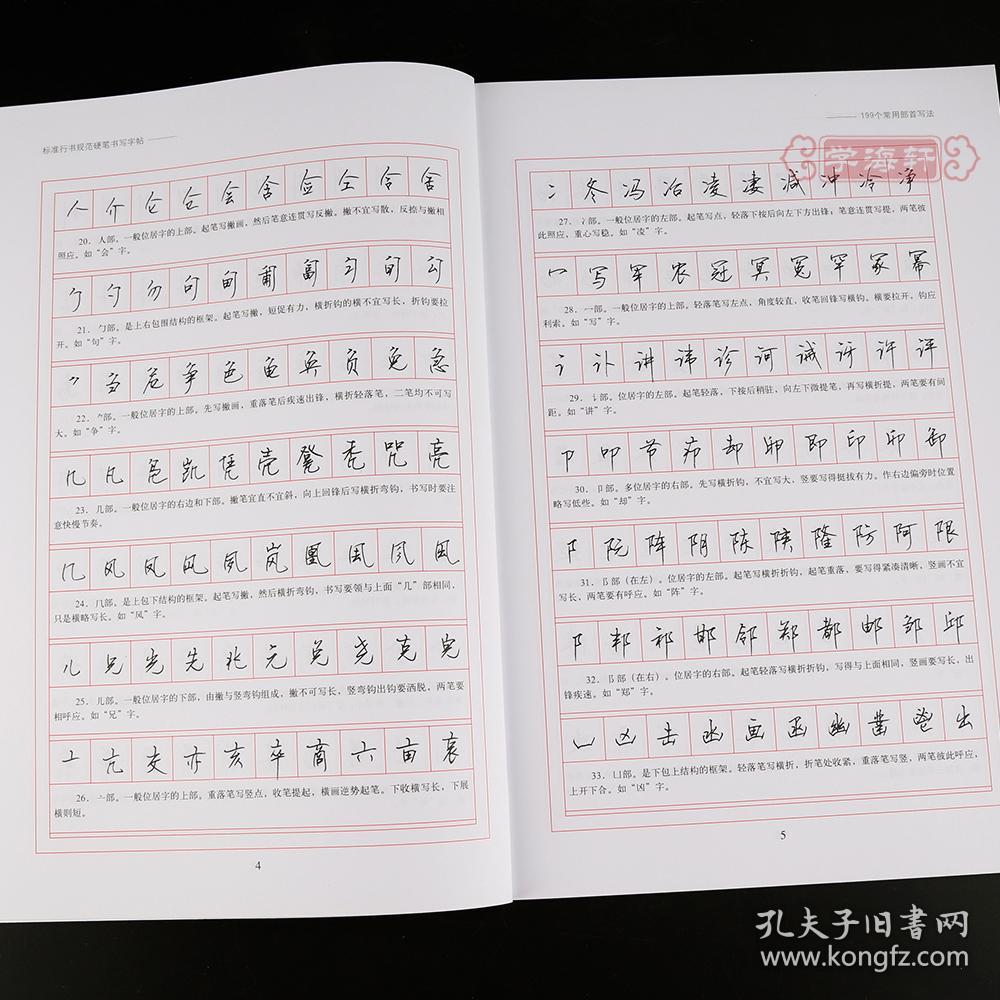 标准行书规范硬笔书写字帖
人 介 仑 仓 会 含 佥 仝 令 舍
20．人部。一般位居字的上部。起笔写撇画，然后笔意连贯写反撇。撇不宜写散，反捺与撇相
照应。如“会”字。
勹 勺 勿 句 匍 匐 匀 旬 勾
21．勹部。是上右包围结构的框架。起笔写撇，短促有力，横折钩的横不宜写长，折钩要拉
开。如“句”字。
⺈ 刍 危 争 色 龟 奂 负 免 急
22．⺈部。一般位居字的上部。先写撇画，重落笔后疾速出锋，横折轻落笔，二笔均不可写
大。如“争”字。
几 凡 凯 凭 壳 凳 秃 咒 亮
23．几部。一般位居字的右边和下部。撇笔宜直不宜斜，向上回锋后写横折弯钩，书写时要注
意快慢节奏。
几 风 凤 风 夙 岚 凰
24．几部。是上包下结构的框架。起笔写撇，然后横折弯钩，书写要领与上面“几”部相同，
只是横略写长。如“风”字。
儿 兄 光 先 兆 元 兑 尧 克 完
25．儿部。一般位居字的下部，由撇与竖弯钩组成，撇不可写长，竖弯钩出钩要洒脱，两笔要
相呼应。如“兄”字。
亠 亢 变 亦 亥 卒 商 六 亩 哀
26．亠部。一般位居字的上部。重落笔写竖点，收笔提起，横画逆势起笔。下收横写长，下展
横则短。
4
199个常用部首写法
学海轩
冫 冬 冯 冶 凌 凄 减 冲 冷 净
27．冫部。一般位居字的左部。起笔写点，轻落下按后向左下方出锋；笔意连贯写提，两笔彼
此照应，重心写稳。如“凌”字。
冖 写 军 农 冠 冥 冤 罕 冢 幂
28．冖部。一般位居字的上部。轻落笔写左点，角度较直，收笔回锋写横钩。横要拉开，钩应
利索。如“写”字。
讠 讣 讲 讳 诊 诃 诫 讶 许 评
29．讠部。位居字的左部。起笔轻落，下按后稍驻，向左下微提笔，再写横折提，两笔要有间
距。如“讲”字。
卩 叩 节 却 卵 即 印 卯 卸
30．卩部。多位居字的右部。先写横折钩，不宜写大，竖要写得挺拔有力。作右边偏旁时位置
略写低些。如“却”字。
阝 阮 阵 阴 陈 陕 隆 防 阿 限
31．阝部（在左）。位居字的左部。起笔写横折折钩，起笔重落，要写得紧凑清晰，竖画不宜
写长，两笔要有呼应。如“阵”字。
阝 邦 祁 邯 邻 郑 都 邮 邹 邱
32．阝部（在右）。位居字的右部。起笔轻落写横折折钩，写得与上面相同，竖画要写长，出
锋疾速。如“郑”字。
凵 凶 击 画 函 幽 凿 出
33．凵部。是下包上结构的框架。轻落笔写横折，折笔处收紧，重落笔写竖，两笔彼此呼应，
上开下合。如“凶”字。
5
孔夫子旧书网
www.kongfz.com